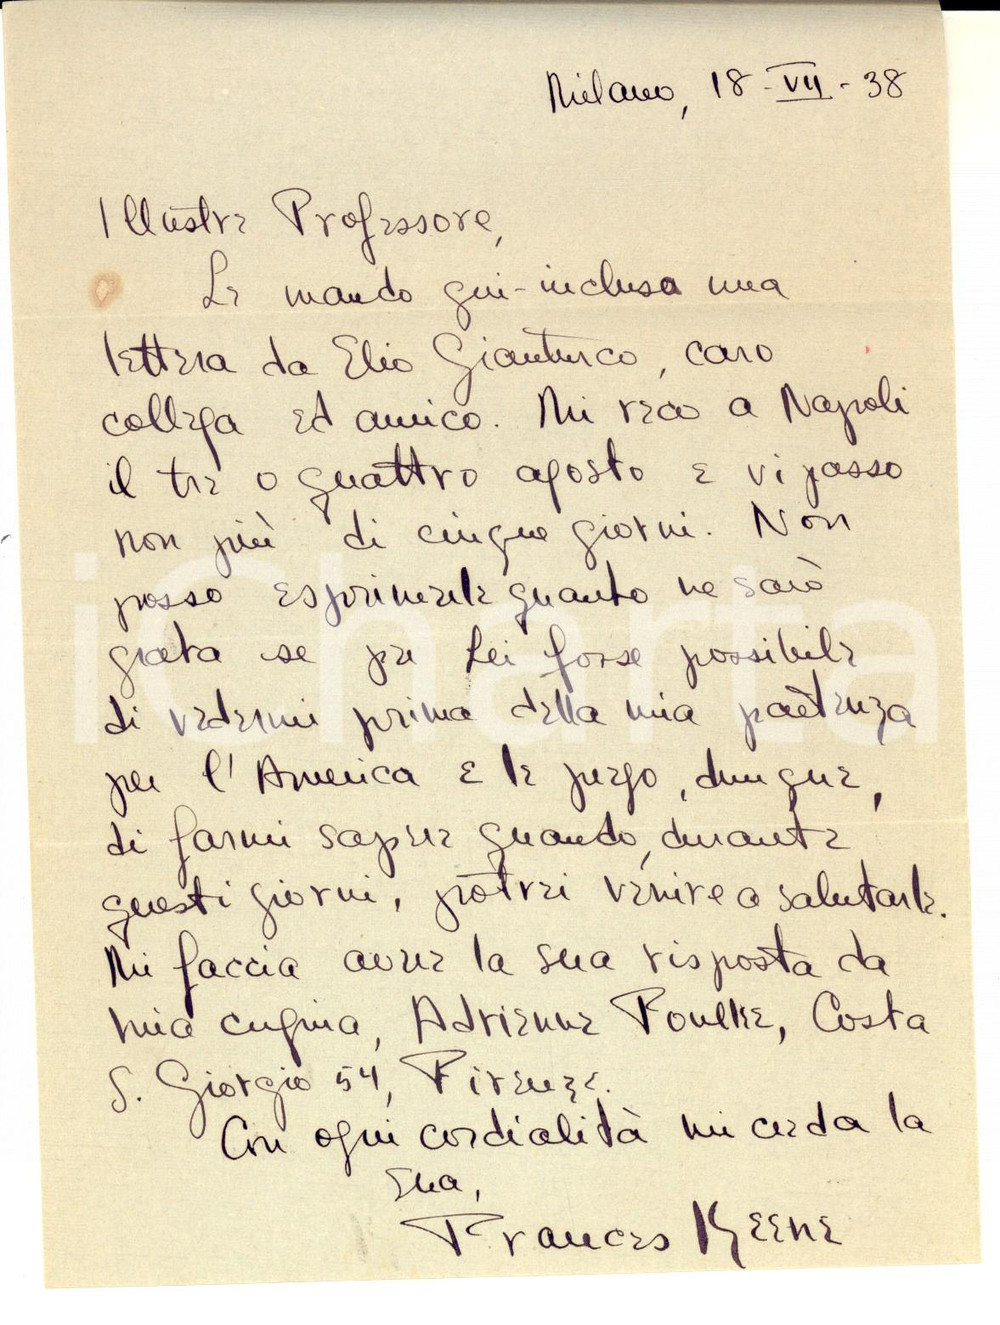 Milano, 18-VII-38
Illustre Professore,
Le mando qui-inclusa una
lettera da Elio Gianturco, caro
collega ed amico. Mi reco a Napoli
il tre o quattro agosto e vi passo
non più di cinque giorni. Non
posso esprimerle quanto ne sarò
grata se per Lei fosse possibile
di vedermi prima della mia partenza
per l'America e le prego, dunque,
di farmi sapere quando, durante
questi giorni, potrei venire a salutarle.
Mi faccia avere la sua risposta da
mia cugina, Adrienne Foulke, Costa
S. Giorgio 54, Firenze.
Con ogni cordialità mi creda la
Sua,
Frances Keene
iCharta